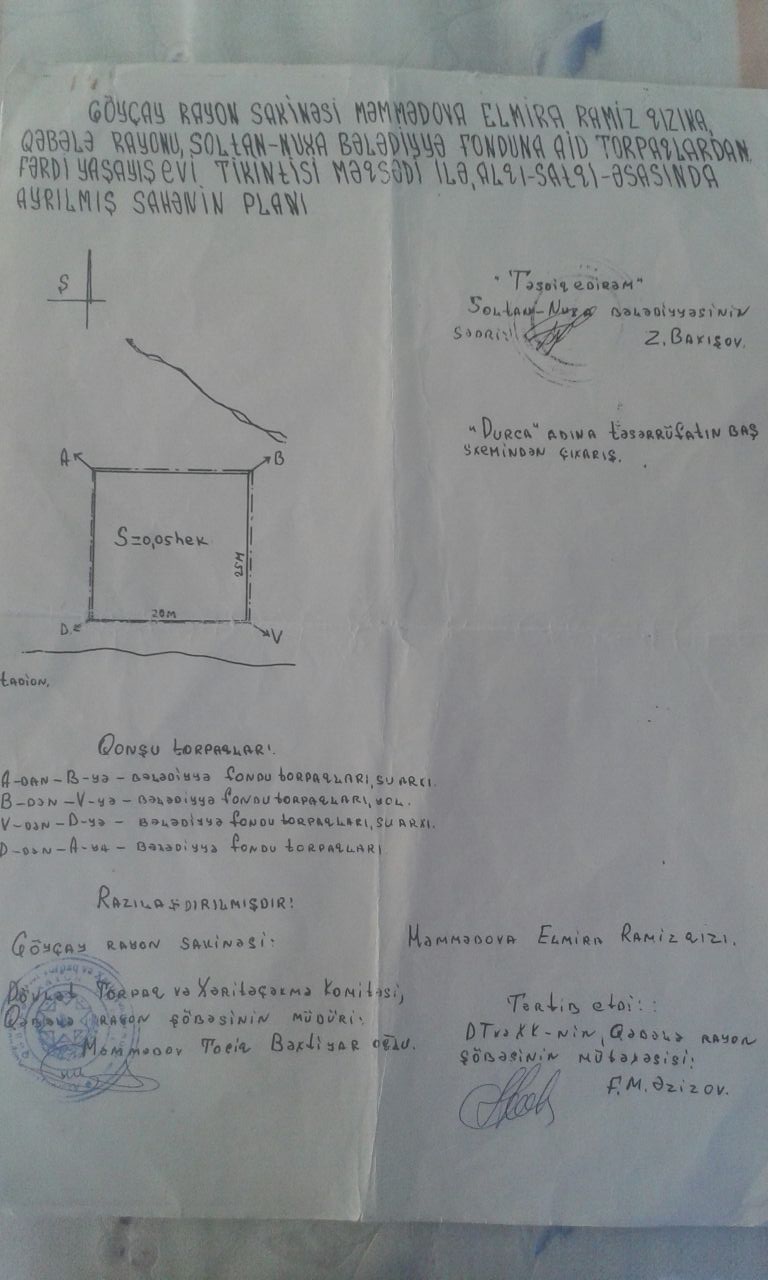 GÖYÇAY RAYON SAKİNƏSİ MƏMMƏDOVA ELMİRA RAMİZ QIZINA,
QƏBƏLƏ RAYONU, SOLTAN-NUXA BƏLƏDİYYƏ FONDUNA AİD TORPAQLARDAN
FƏRDİ YAŞAYIŞ EVİ TİKİNTİSİ MƏQSƏDİ İLƏ, ALQI-SATQI-ƏSASINDA
AYRILMIŞ SAHƏNİN PLANI
Ş
"Təsdiq edirəm"
Soltan-Nuxa bələdiyyəsinin
sədri:
Z. Baxışov.
"Durca" adına təsərrüfatın baş
sxemindən çıxarış.
A
B
S=0,05hek
25M
20M
D
V
tadion.
Qonşu torpaqları.
A-dan-B-yə - bələdiyyə fondu torpaqları, su arxı.
B-dən-V-yə - bələdiyyə fondu torpaqları, yol.
V-dən-D-yə - bələdiyyə fondu torpaqları, su arxı.
D-dən-A-ya - bələdiyyə fondu torpaqları
Razılaşdırılmışdır:
Göyçay rayon sakinəsi:
Məmmədova Elmira Ramiz qızı.
Dövlət Torpaq və Xəritəçəkmə Komitəsi,
Qəbələ rayon şöbəsinin müdüri:
Məmmədov Tofiq Bəxtiyar oğlu.
Tərtib etdi:
DTvəXK-nin, Qəbələ rayon
şöbəsinin mütəxəsisi:
F.M. Əzizov.